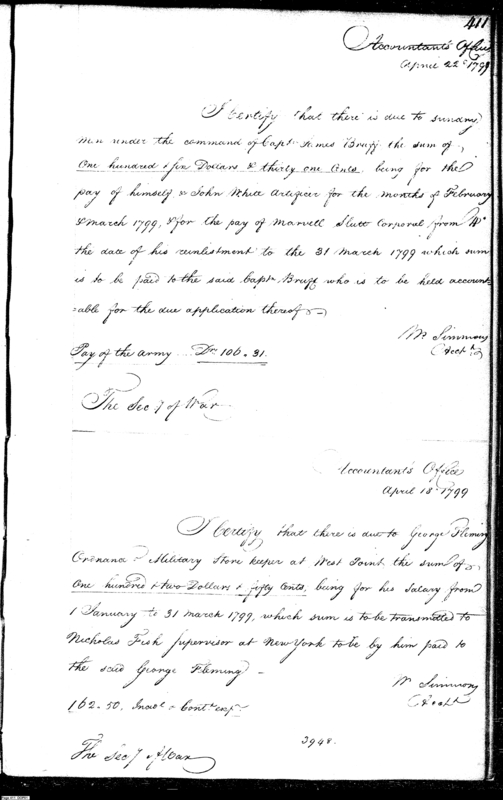 411
Accountants Office
April 22d 1799
I Certify that there is due to sundry
men under the command of Capt James Bruff the sum of
One hundred & six Dollars & thirty one Cents, being for the
pay of himself & John White Artificer for the months of February
& March 1799, & for the pay of Marvell Slutt Corporal from
the date of his reinlistment to the 31 March 1799 which sum
is to be paid to the said Capt Bruff who is to be held account-
=able for the due application thereof
Wm Simmons
Acctt
Pay of the Army Drs 106.31.
The Secy of War
Accountants Office
April 18 1799
I Certify that there is due to George Fleming
Ordnance & Military Store keeper at West Point the sum of
One hundred & two Dollars & fifty Cents, being for his Salary from
1 January to 31 March 1799, which sum is to be transmitted to
Nicholas Fish supervisor at New York to be by him paid to
the said George Fleming
W Simmons
Acctt
102-50.
3948.
The Secy of War